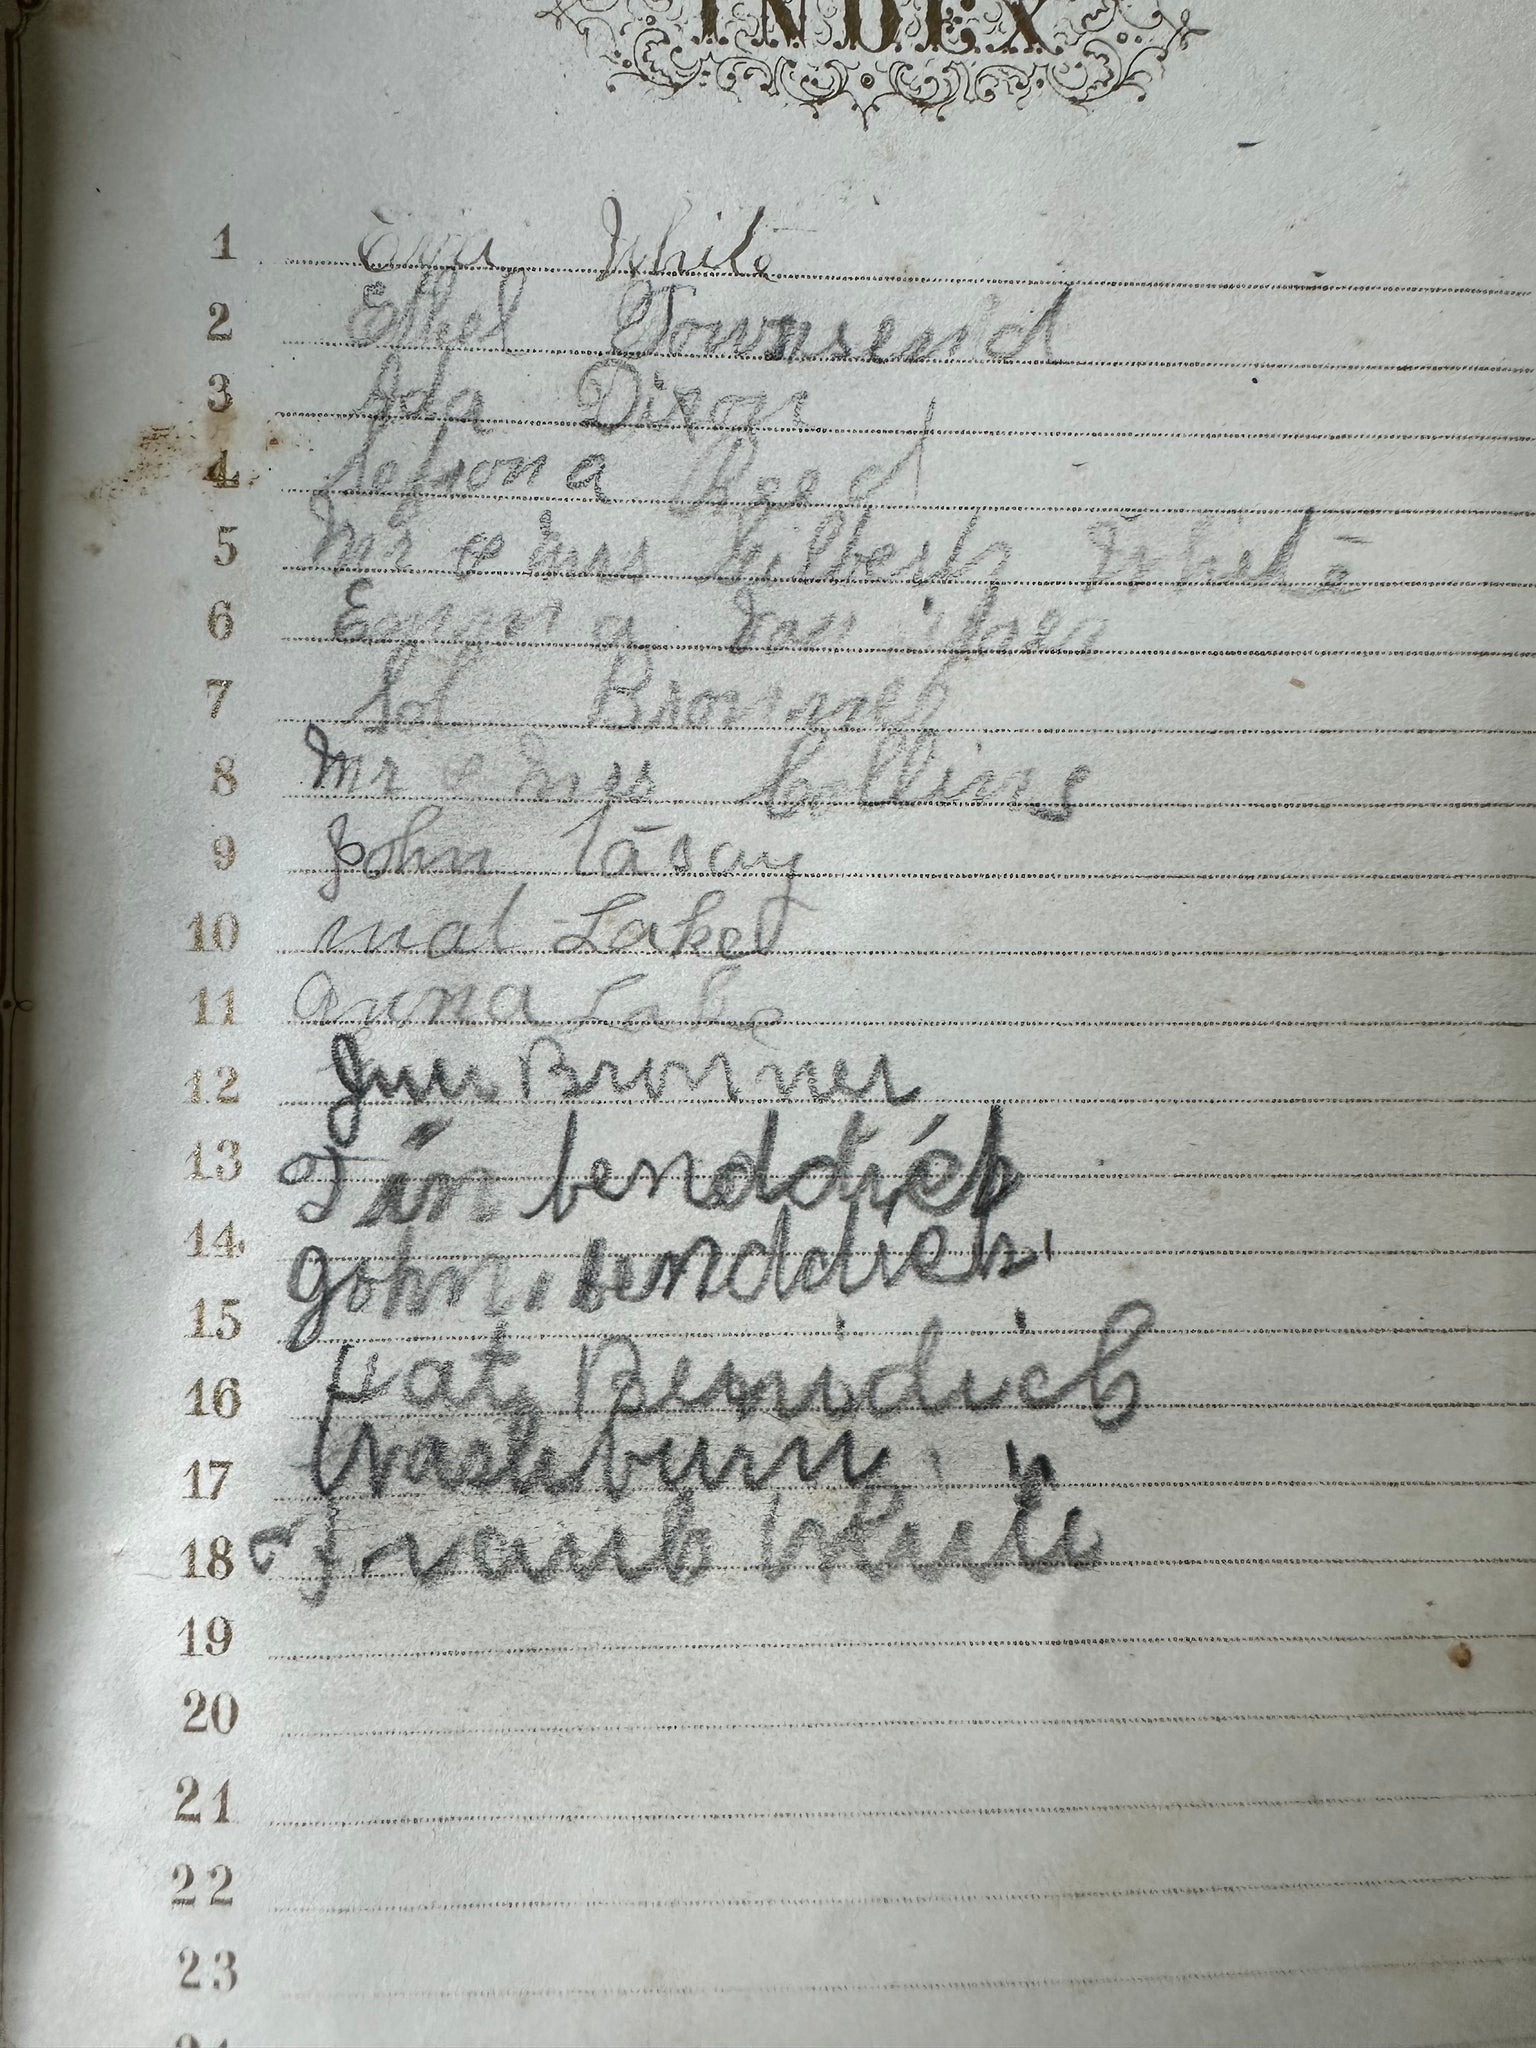 INDEX
1 Eva White
2 Ethel Townsend
3 Ada Dixon
4 Reed
5 Mr & Mrs Gilbert White
6 Emma
7 Sol Bronner
8 Mr & Mrs Collins
9 John
10 Lake
11 Anna Lake
12 Bronner
13 benddict
14 gohn benddict
15
16 Benidict
17 washburn
18 Frank White
19
20
21
22
23